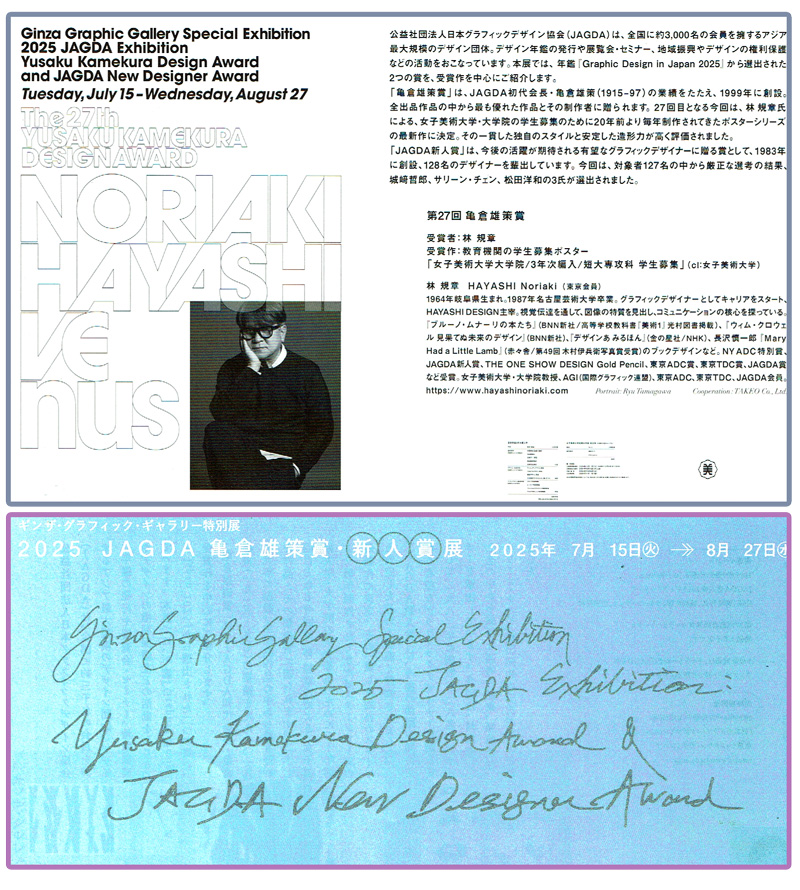 Ginza Graphic Gallery Special Exhibition
2025 JAGDA Exhibition
Yusaku Kamekura Design Award
and JAGDA New Designer Award
Tuesday, July 15–Wednesday, August 27
The 27th
YUSAKU KAMEKURA
DESIGN AWARD
NORIAKI
HAYASHI
VE
nus
公益社団法人日本グラフィックデザイン協会(JAGDA)は、全国に約3,000名の会員を擁するアジア
最大規模のデザイン団体。デザイン年鑑の発行や展覧会・セミナー、地域振興やデザインの権利保護
などの活動をおこなっています。本展では、年鑑『Graphic Design in Japan 2025』から選出された
2つの賞を、受賞作を中心にご紹介します。
「亀倉雄策賞」は、JAGDA初代会長・亀倉雄策(1915–97)の業績をたたえ、1999年に創設。
全出品作品の中から最も優れた作品とその制作者に贈られます。27回目となる今回は、林 規章氏
による、女子美術大学・大学院の学生募集のために20年前より毎年制作されてきたポスターシリーズ
の最新作に決定。その一貫した独自のスタイルと安定した造形力が高く評価されました。
「JAGDA新人賞」は、今後の活躍が期待される有望なグラフィックデザイナーに贈る賞として、1983年
に創設、128名のデザイナーを輩出しています。今回は、対象者127名の中から厳正な選考の結果、
城﨑哲郎、サリーン・チェン、松田洋和の3氏が選出されました。
第27回 亀倉雄策賞
受賞者：林 規章
受賞作：教育機関の学生募集ポスター
「女子美術大学大学院/3年次編入/短大専攻科 学生募集」(cl:女子美術大学)
林 規章 HAYASHI Noriaki (東京会員)
1964年岐阜県生まれ。1987年名古屋芸術大学卒業。グラフィックデザイナーとしてキャリアをスタート、
HAYASHI DESIGN主宰。視覚伝達を通して、図像の特質を見出し、コミュニケーションの核心を探っている。
『ブルーノ・ムナーリの本たち』(BNN新社/高等学校教科書『美術1』光村図書掲載)、『ウィム・クロウェ
ル 見果てぬ未来のデザイン』(BNN新社)、『デザインあ みるほん』(金の星社/NHK)、長沢慎一郎『Mary
Had a Little Lamb』(赤々舎/第49回 木村伊兵衛写真賞受賞)のブックデザインなど。NY ADC特別賞、
JAGDA新人賞、THE ONE SHOW DESIGN Gold Pencil、東京ADC賞、東京TDC賞、JAGDA賞
など受賞。女子美術大学・大学院教授、AGI(国際グラフィック連盟)、東京ADC、東京TDC、JAGDA会員。
https://www.hayashinoriaki.com Portrait: Ryu Tamagawa Cooperation: TAKEO Co., Ltd.
美
ギンザ・グラフィック・ギャラリー特別展
2025 JAGDA 亀倉雄策賞・新人賞展 2025年 7月 15日㊋ → 8月 27日㊌
Ginza Graphic Gallery Special Exhibition
2025 JAGDA Exhibition:
Yusaku Kamekura Design Award &
JAGDA New Designer Award